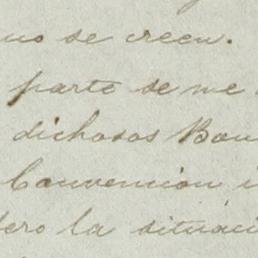 se creen.
parte se me
dichosos Bon
Convencion i
pero la situaci